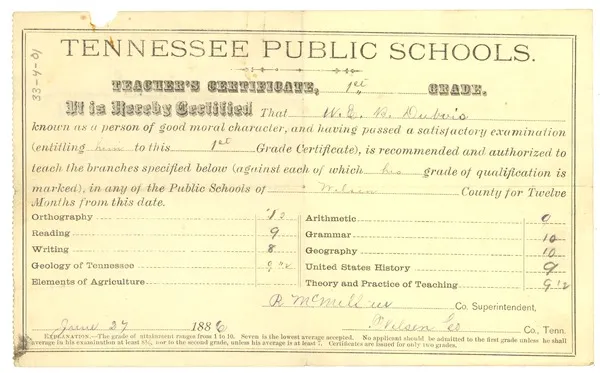 33-4-01
TENNESSEE PUBLIC SCHOOLS.
TEACHER'S CERTIFICATE, 1st GRADE.
It is Hereby Certified That W. E. B. Dubois
known as a person of good moral character, and having passed a satisfactory examination
(entitling him to this 1st Grade Certificate), is recommended and authorized to
teach the branches specified below (against each of which his grade of qualification is
marked), in any of the Public Schools of Wilson County for Twelve
Months from this date.
Orthography
Reading 9
Writing 8
Geology of Tennessee 9 1/2
Elements of Agriculture
Arithmetic
Grammar 10
Geography 10
United States History 9
Theory and Practice of Teaching 9 1/2
R McMillin Co. Superintendent,
June 27 1886 Wilson Co Co., Tenn.
EXPLANATION.—The grade of attainment ranges from 1 to 10. Seven is the lowest average accepted. No applicant should be admitted to the first grade unless he shall
average in his examination at least 8½, nor to the second grade, unless his average is at least 7. Certificates are issued for only two grades.